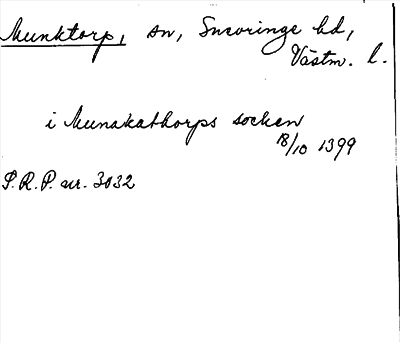 Munktorp, sn, Snevringe hd,
Västm. l.
i Munakathorps socken
18/10 1399
S.R.P. nr. 3032